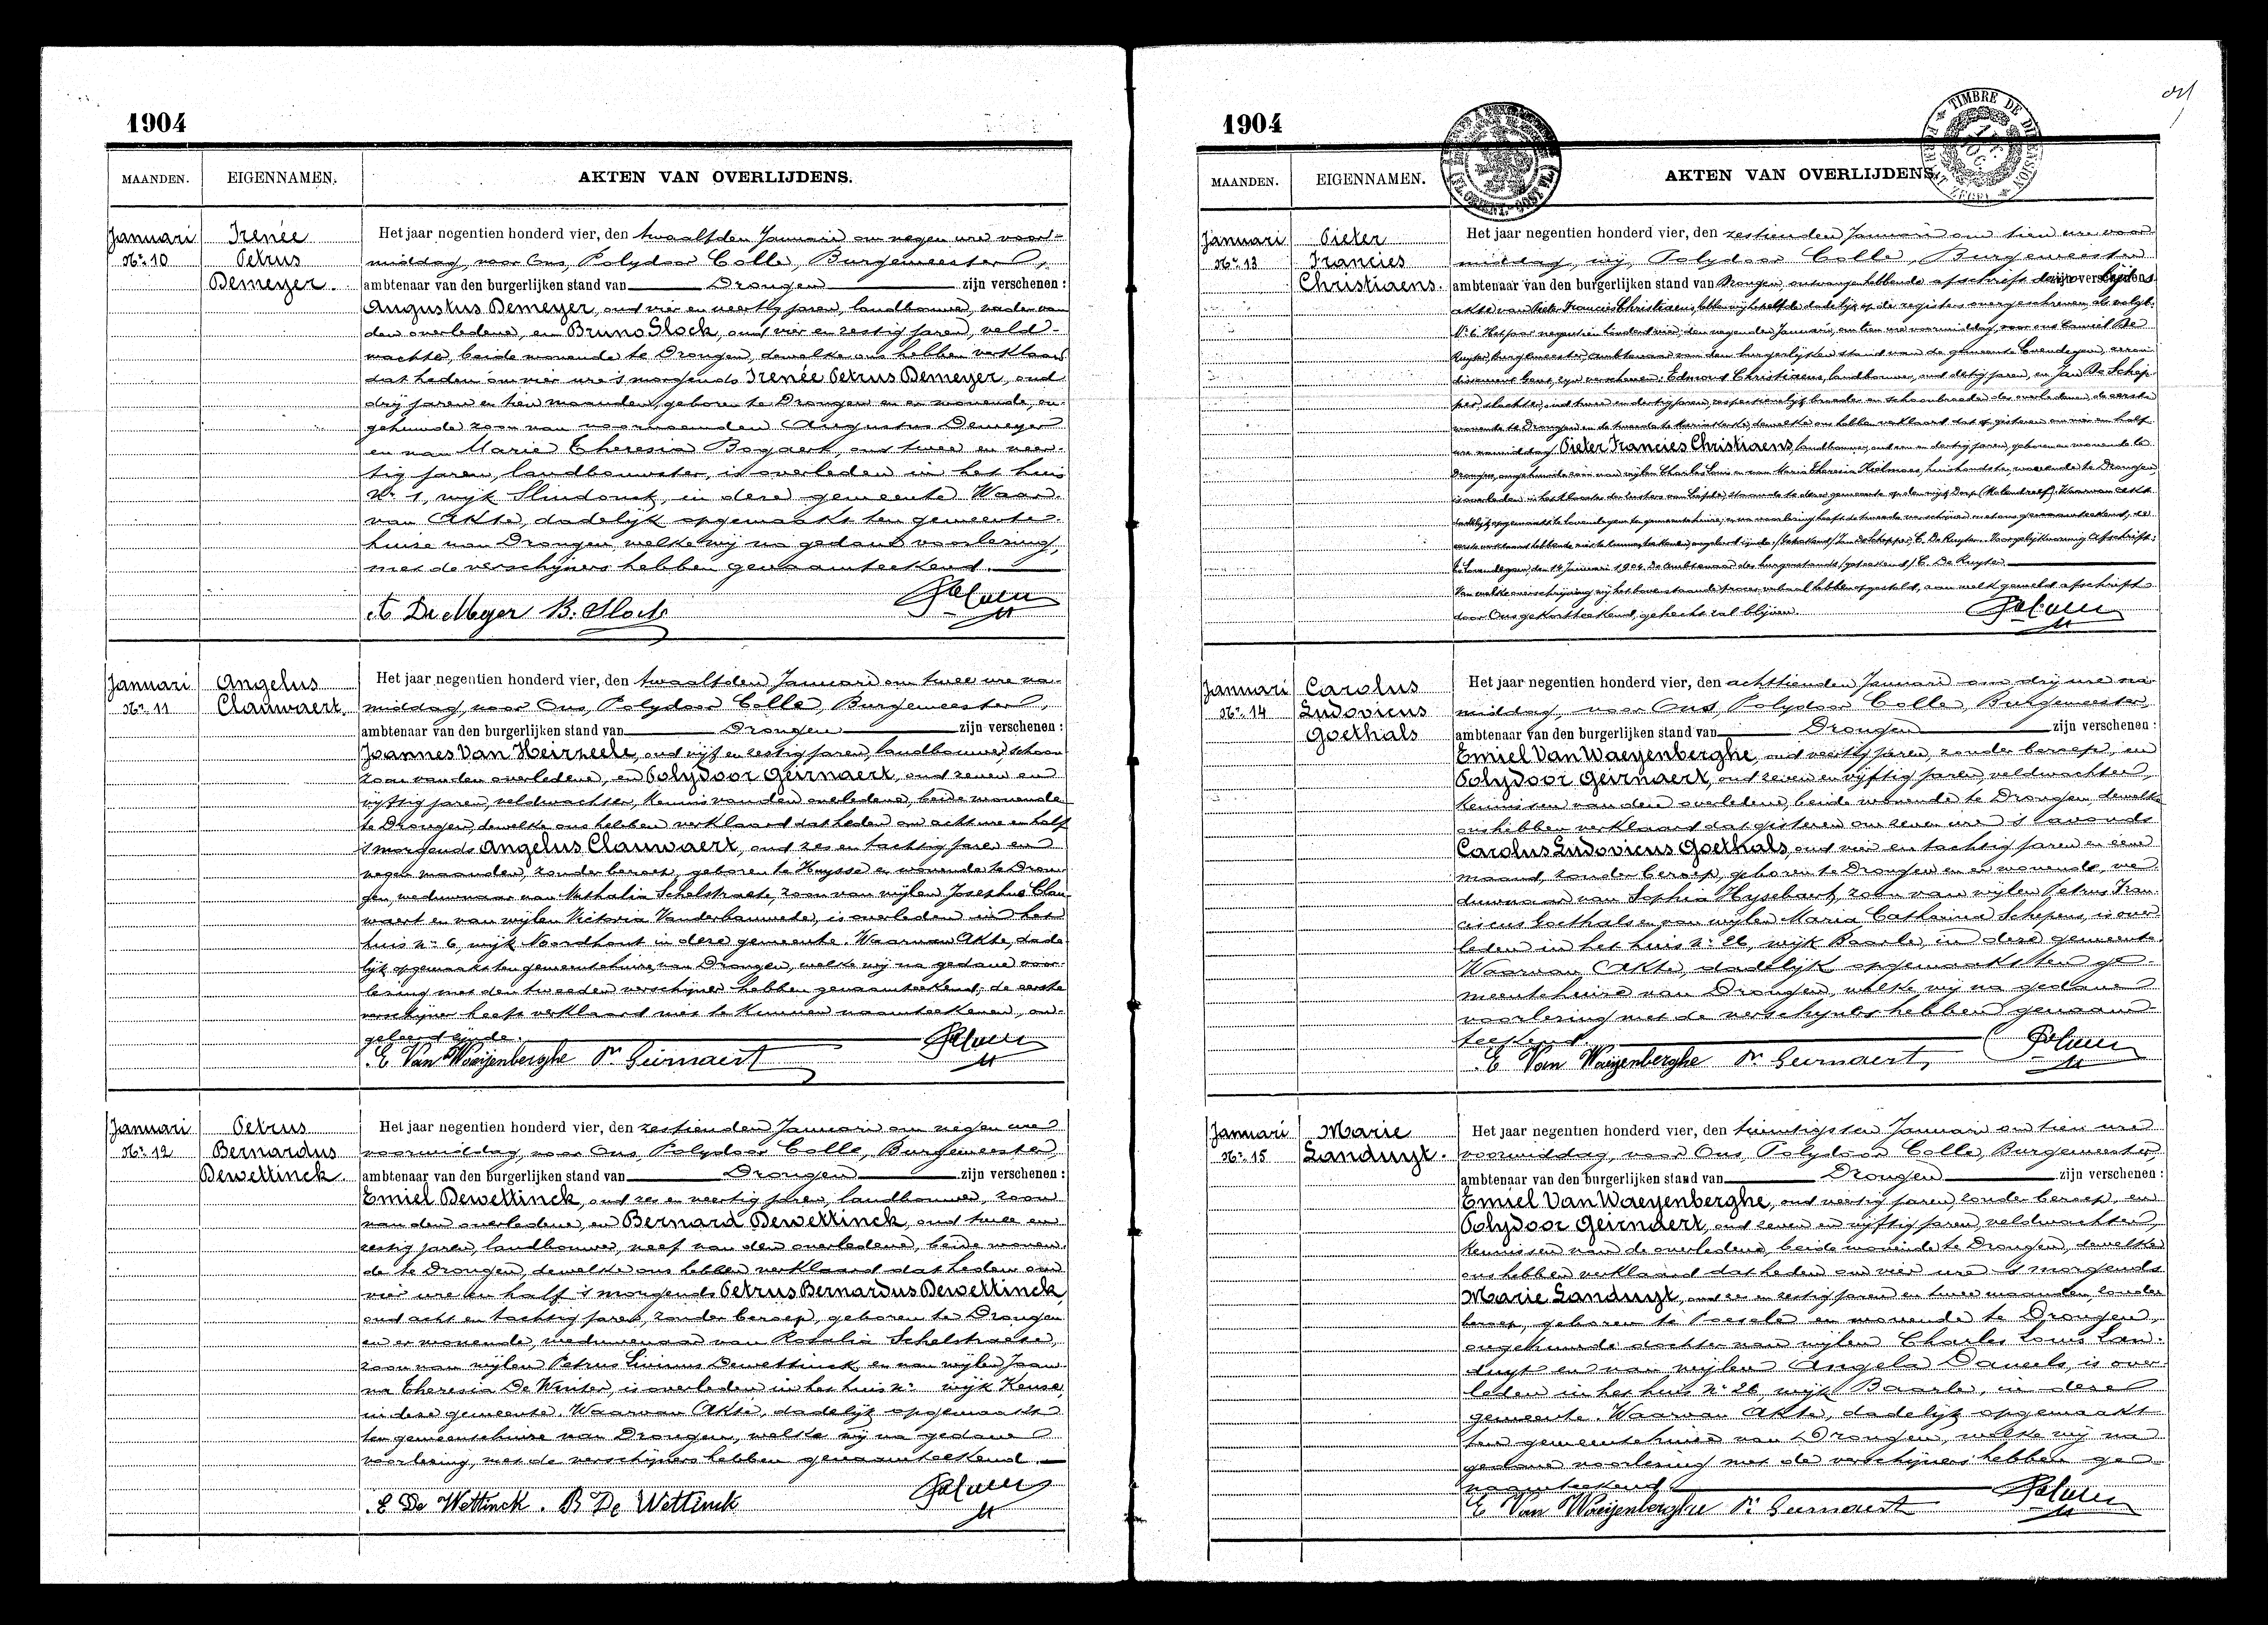 1904
MAANDEN. EIGENNAMEN. AKTEN VAN OVERLIJDENS.
Januari
Nr. 10
Irenée
Petrus
Demeyer.
Het jaar negentien honderd vier, den twaalfden Januari om negen ure voor-
middag, voor Ons, Polydoor Colle, Burgemeester,
ambtenaar van den burgerlijken stand van Drongen zijn verschenen :
Augustus Demeyer, oud vier en veertig jaren, landbouwer, vader van
den overledene, en Bruno Slock, oud vier en zestig jaren, veld-
wachter, beide wonende te Drongen, dewelke ons hebben verklaard
dat heden om vier ure 's morgends Irenée Petrus Demeyer, oud
drij jaren en tien maanden, geboren te Drongen en er wonende, on-
gehuwde zoon van voornoemden Augustus Demeyer
en van Marie Theresia Bogaert, oud twee en veer-
tig jaren, landbouwster, is overleden in het huis
Nr. 1, wijk Slindonck, in deze gemeente. Waar-
van Akte, dadelijk opgemaakt ten gemeente-
huize van Drongen, welke wij na gedane voorlezing,
met de verschijners hebben genaamteekend.
A DeMeyer B. Slock
Januari
Nr. 11
Angelus
Clauwaert.
Het jaar negentien honderd vier, den twaalfden Januari om twee ure na-
middag, voor Ons, Polydoor Colle, Burgemeester,
ambtenaar van den burgerlijken stand van Drongen zijn verschenen :
Joannes Van Heirzeele, oud vijf en zestig jaren, landbouwer, schoon-
zoon van den overledene, en Polydoor Geirnaert, oud zeven en
vijftig jaren, veldwachter, kennis van den overledene, beide wonende
te Drongen, dewelke ons hebben verklaard dat heden om acht ure en half
's morgends Angelus Clauwaert, oud zes en tachtig jaren en
negen maanden, zonder beroep, geboren te Huysse en wonende te Dron-
gen, weduwnaar van Nathalia Schelstraete, zoon van wijlen Josephus Clau-
waert en van wijlen Victoria Vanderbauwede, is overleden in het
huis nr. 6, wijk Noordhout in deze gemeente. Waarvan Akte, dade-
lijk opgemaakt ten gemeentehuize van Drongen, welke wij na gedane voor-
lezing met den tweeden verschijner hebben genaamteekend; de eerste
verschijner heeft verklaard niet te kunnen naamteekenen, on-
geleerd zijnde.
E Van Waeijenberghe Pr. Geirnaert
Januari
Nr. 12
Petrus
Bernardus
Dewettinck.
Het jaar negentien honderd vier, den zestienden Januari om negen ure
voormiddag, voor Ons, Polydoor Colle, Burgemeester,
ambtenaar van den burgerlijken stand van Drongen zijn verschenen :
Emiel Dewettinck, oud zes en veertig jaren, landbouwer, zoon
van den overledene, en Bernard Dewettinck, oud twee en
zestig jaren, landbouwer, neef van den overledene, beide wonen-
de te Drongen, dewelke ons hebben verklaard dat heden om
vier ure en half 's morgends Petrus Bernardus Dewettinck,
oud acht en tachtig jaren, zonder beroep, geboren te Drongen
en er wonende, weduwenaar van Rosalia Schelstraete,
zoon van wijlen Petrus Livinus Dewettinck en van wijlen Joan-
na Theresia De Winter, is overleden in het huis nr. wijk Keuze,
in deze gemeente. Waarvan Akte, dadelijk opgemaakt
ten gemeentehuize van Drongen, welke wij na gedane
voorlezing, met de verschijners hebben genaamteekend.
E De Wettinck. B De Wettinck
1904
TIMBRE DE DIMENSION
MAANDEN. EIGENNAMEN. AKTEN VAN OVERLIJDENS.
Januari
Nr. 13
Pieter
Francies
Christiaens.
Het jaar negentien honderd vier, den zestienden Januari om tien ure voor-
middag, wij, Polydoor Colle, Burgemeester
ambtenaar van den burgerlijken stand van Drongen, ontvangen hebbende afschrift der overlijdens
akte van Pieter Francies Christiaens, hebben wij hetzelfde dadelijk op de registers overgeschreven, als volgt:
Nr. 6. Het jaar negentien honderd vier, den negenden Januari, om tien ure voormiddag, voor ons Camiel De
Ruyter, burgemeester, ambtenaar van den burgerlijken stand van de gemeente Lovendegem, arron-
dissement Gent, zijn verschenen: Edmond Christiaens, landbouwer, oud dertig jaren, en Jan De Schep-
per, slachter, oud twee en dertig jaren, respectievelijk broeder en schoonbroeder des overledene, de eerste
wonende te Drongen en de tweede te Merendree, dewelke ons hebben verklaard dat op gisteren om vier en half
ure namiddag Pieter Francies Christiaens, landbouwer, oud een en dertig jaren, geboren en wonende te
Drongen, ongehuwde zoon van wijlen Charles Louis en van Maria Theresia Hielmans, huishoudster, wonende te Drongen
is overleden in het klooster der zusters van Liefde, staande te dezer gemeente op den wijk Dorp (Molendreef). Waarvan akte
dadelijk opgemaakt te Lovendegem ten gemeentehuize, en na voorlezing heeft de tweede verschijner met ons genaamteekend, de
eerste verklaard hebbende niet te kunnen teekenen, ongeleerd zijnde. (Geteekend) J. De Schepper, C. De Ruyter. Voor gelijkvormig Afschrift:
Te Lovendegem, den 14 Januari 1904. De Ambtenaar des burgerstands, (geteekend) C. De Ruyter.
Van welke overschrijving wij het bovenstaande proces-verbaal hebben opgesteld, aan welk gemeld afschrift
door Ons gekortteekend, gehecht zal blijven.
Januari
Nr. 14
Carolus
Ludovicus
Goethals
Het jaar negentien honderd vier, den achttienden Januari om drij ure na-
middag, voor Ons, Polydoor Colle, Burgemeester,
ambtenaar van den burgerlijken stand van Drongen zijn verschenen :
Emiel Van Waeyenberghe, oud veertig jaren, zonder beroep, en
Polydoor Geirnaert, oud zeven en vijftig jaren, veldwachter,
kennissen van den overledene, beide wonende te Drongen, dewelke
ons hebben verklaard dat gisteren om zeven ure 's avonds
Carolus Ludovicus Goethals, oud vier en tachtig jaren en eene
maand, zonder beroep, geboren te Drongen en er wonende, we-
duwnaar van Sophia Hysebaert, zoon van wijlen Petrus Fran-
ciscus Goethals en van wijlen Maria Catharina Schepens, is over-
leden in het huis nr. 26, wijk Baarle, in deze gemeente.
Waarvan Akte, dadelijk opgemaakt ten ge-
meentehuize van Drongen, welke wij na gedane
voorlezing met de verschijners hebben genaam-
teekend.
E Van Waeijenberghe Pr. Geirnaert
Januari
Nr. 15
Marie
Landuyt.
Het jaar negentien honderd vier, den twintigsten Januari om tien ure
voormiddag, voor Ons, Polydoor Colle, Burgemeester,
ambtenaar van den burgerlijken stand van Drongen zijn verschenen :
Emiel Van Waeyenberghe, oud veertig jaren, zonder beroep, en
Polydoor Geirnaert, oud zeven en vijftig jaren, veldwachter,
kennissen van de overledene, beide wonende te Drongen, dewelke
ons hebben verklaard dat heden om vier ure 's morgends
Marie Landuyt, oud een en zestig jaren en twee maanden, zonder
beroep, geboren te Poesele en wonende te Drongen,
ongehuwde dochter van wijlen Charles Louis Lan-
duyt en van wijlen Angela Dauwels, is over-
leden in het huis nr. 26, wijk Baarle, in deze
gemeente. Waarvan Akte, dadelijk opgemaakt
ten gemeentehuize van Drongen, welke wij na
gedane voorlezing met de verschijners hebben ge-
naamteekend.
E Van Waeijenberghe Pr. Geirnaert